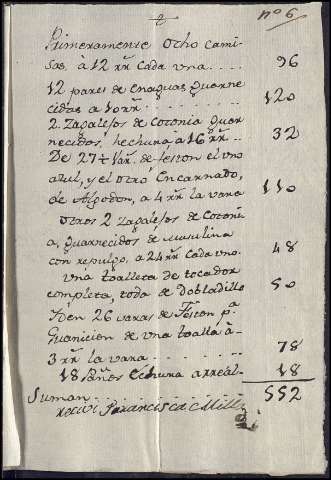 2
nº 6
Primeramente Ocho Cami-
sas, à 12 rr. cada una.... 96
12 pares de Enaguas guarne-
cidas a 10 rr......... 120
2. Zagalejos de Cotonia guar-
necidos, hechura à 16 rr... 32
De 27½ var.s de feston el uno
azul, y el otro Encarnado,
de Algodon, a 4 rr. la vara 110
otros 2 Zagalejos de Cotoni-
a, guarnecidos de Muselina
con repulgo, a 24 rr. cada uno. 48
una toalleta de tocador
completa toda de dobladillo 50
Iden 26 varas de Feston p.a
Guanicion de una toalla à-
3 rr. la vara........ 78
18 Paños echura a rreal- 18
Suman.......... 552
Francisca Mill